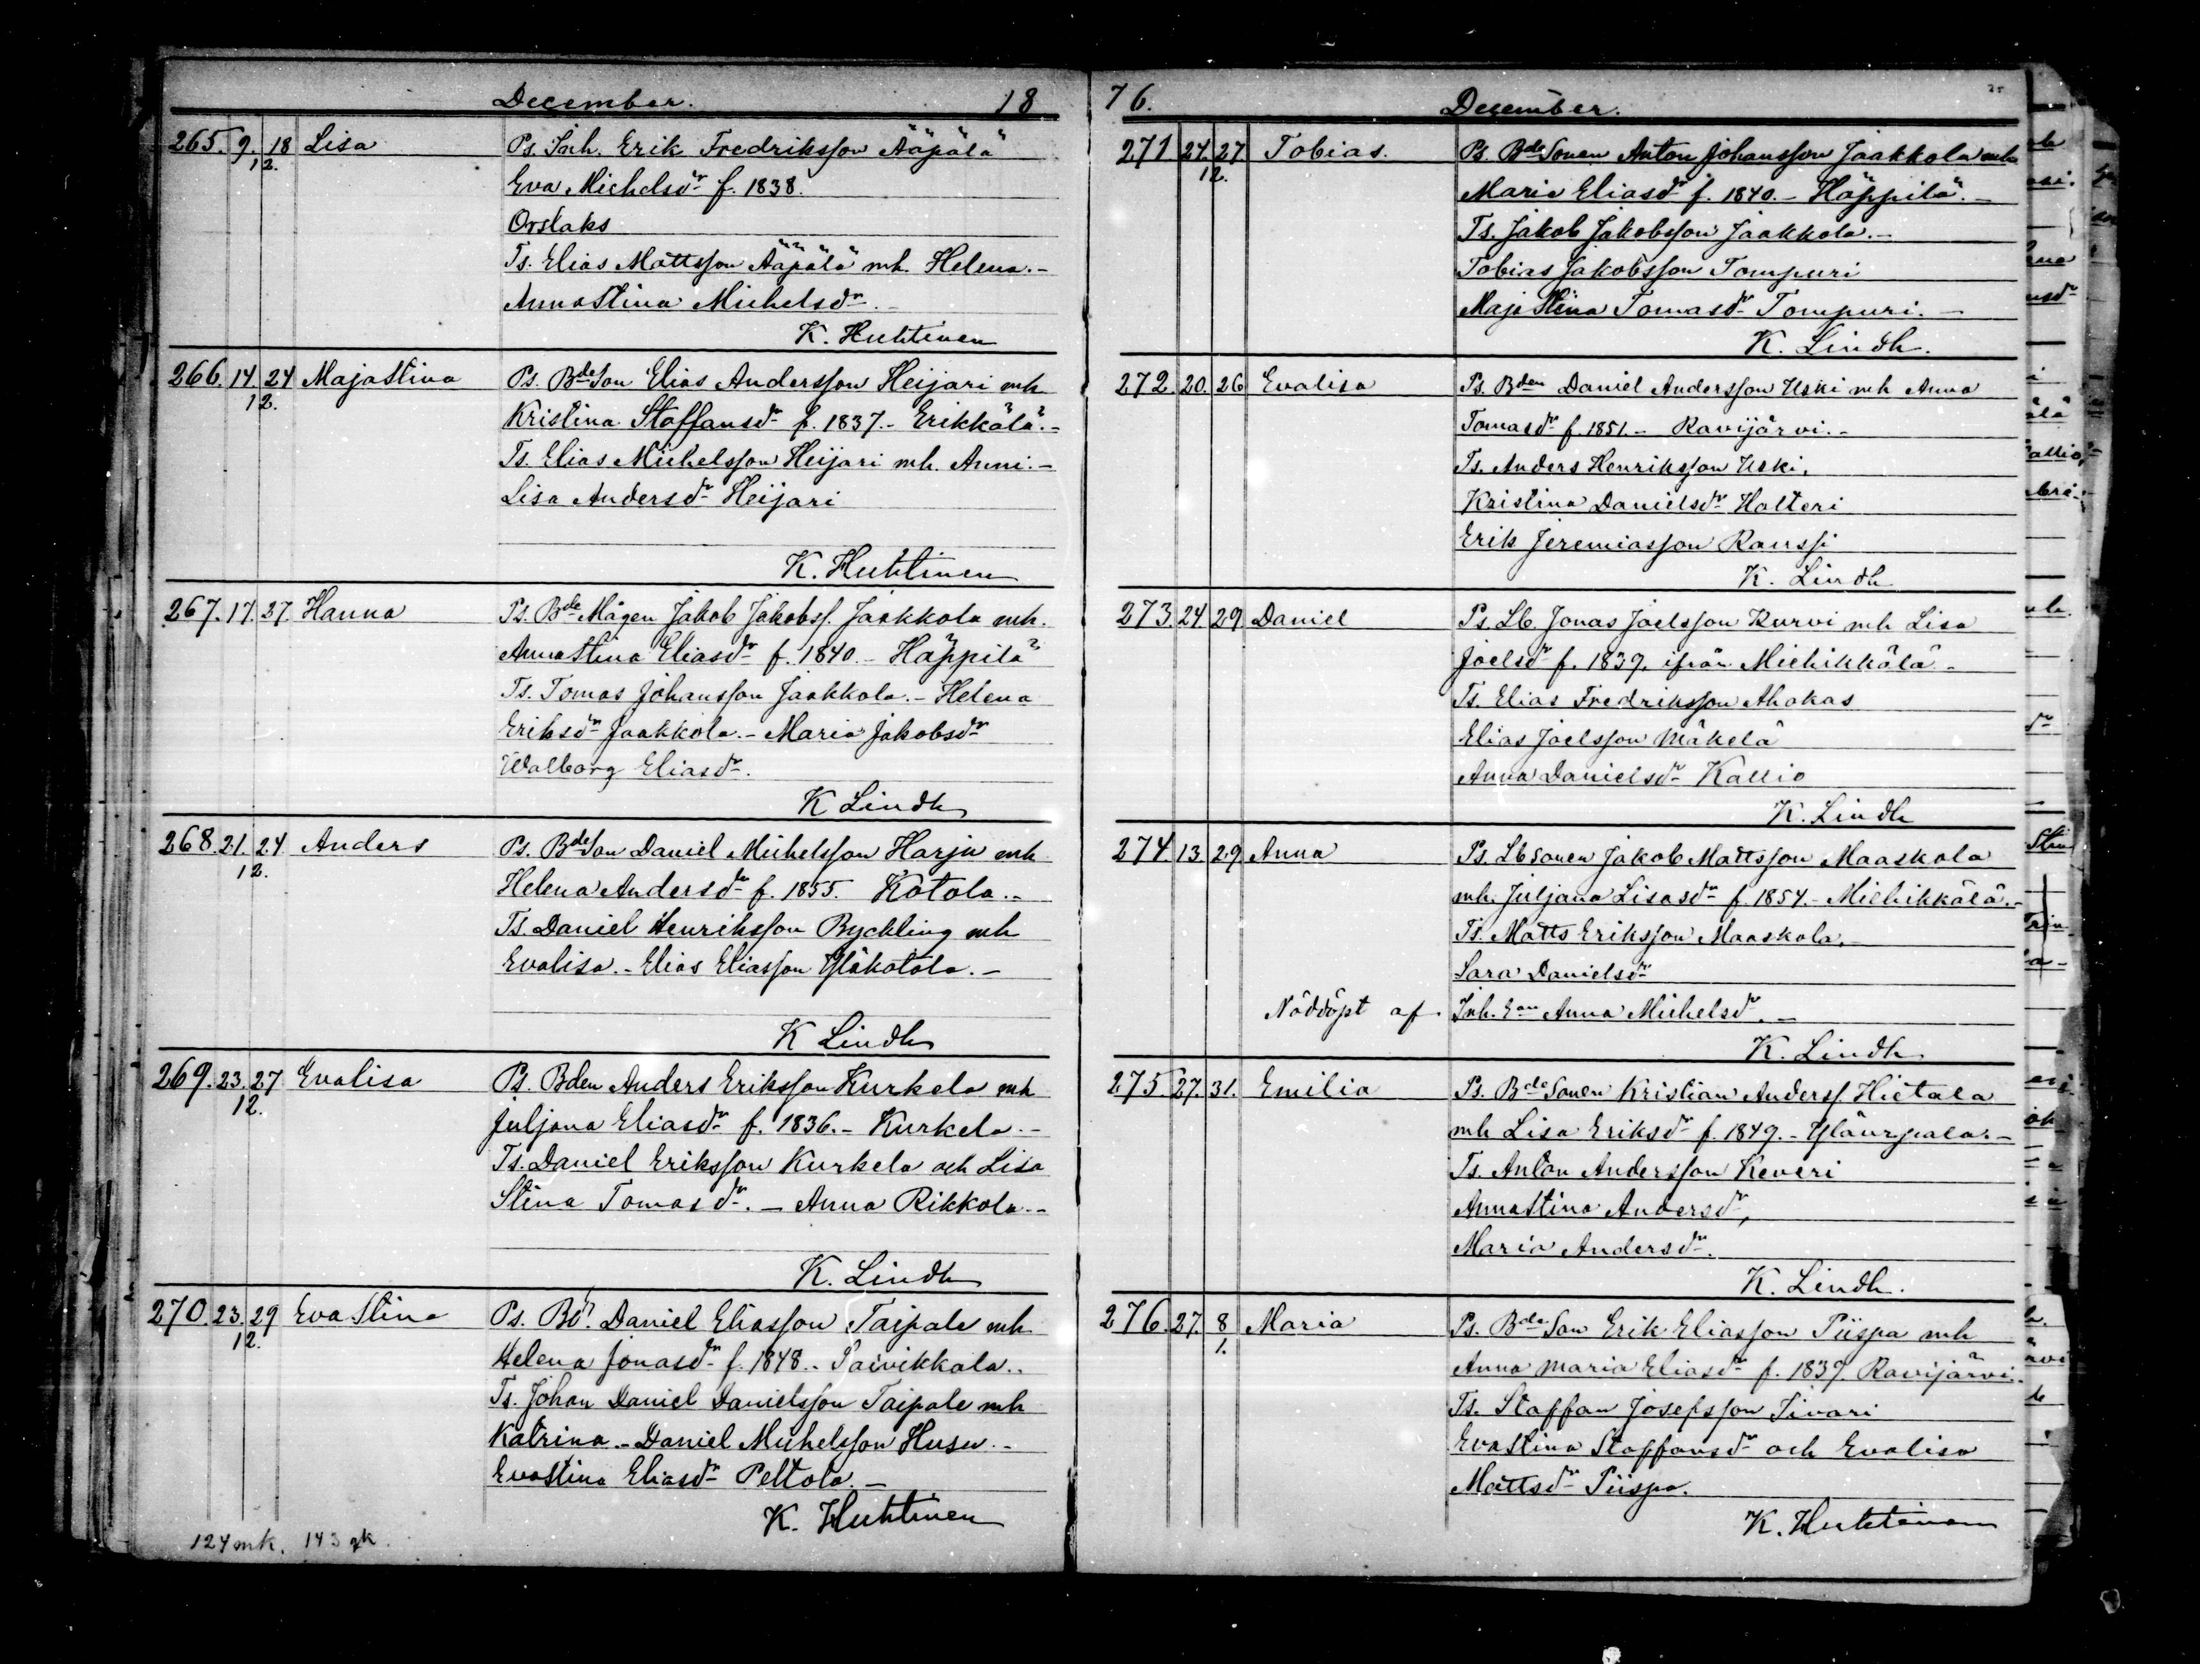 December. 18
265. 9. 18 Lisa Ps. Inh. Erik Fredriksson Ääpälä
12. Eva Michelsdr f. 1838.
Orslaks
Ts. Elias Mattsson Ääpälä mh. Helena.-
AnnaStina Michelsdr.-
K. Huhtinen
266. 14. 24 MajaStina Ps. BdeSon Elias Andersson Heijari mh
12. Kristina Staffansdr f. 1837.- Erikkälä.-
Ts. Elias Michelsson Heijari mh. Anni.-
Lisa Andersdr Heijari
K. Huhtinen
267. 17. 27. Hanna Ps. Bde Mågen Jakob Jakobsf. Jaakkola mh.
AnnaStina Eliasdr f. 1840.- Häppilä
Ts. Tomas Johansson Jaakkola.- Helena
Eriksdr Jaakkola.- Maria Jakobsdr
Walborg Eliasdr.
K Lindh
268. 21. 24 Anders Ps. BdeSon Daniel Michelsson Harju mh
12. Helena Andersdr f. 1855. Kotola.-
Ts. Daniel Henriksson Ryckling mh
Evalisa.- Elias Eliasson Yläkotola.-
K Lindh
269. 23. 27 Evalisa Ps. Bden Anders Eriksson Kurkela mh
12. Juljana Eliasdr f. 1836.- Kurkela.-
Ts. Daniel Eriksson Kurkela och Lisa
Stina Tomasdr.- Anna Rikkola.-
K. Lindh
270. 23. 29 EvaStina Ps. Bdn. Daniel Eliasson Taipale mh
12. Helena Jonasdr f. 1848.. Paivikkala..
Ts. Johan Daniel Danielsson Taipale mh
Katrina.- Daniel Michelsson Husu.-
Evastina Eliasdr Peltola.-
K. Huhtinen
124 mk. 143 qk.
76. December.
271 24. 27 Tobias. Ps. BdeSonen Anton Johansson Jaakkola mh
12. Maria Eliasdr f. 1840.- Häppilä.-
Ts. Jakob Jakobsson Jaakkola.-
Tobias Jakobsson Tompuri
MajaStina Tomasdr Tompuri.-
K. Lindh.
272. 20. 26 Evalisa Ps. Bden Daniel Andersson Uski mh Anna
Tomasdr f. 1851.- Ravijärvi.-
Ts. Anders Henriksson Uski,
Kristina Danielsdr Halteri
Erik Jeremiasson Ranssi
K. Lindh
273. 24. 29 Daniel Ps. Lb. Jonas Joelsson Kurvi mh Lisa
Joelsdr f. 1839. ifrån Miehikkälä-
Ts. Elias Fredriksson Ahokas
Elias Joelsson Mäkelä
Anna Danielsdr Kallio
K. Lindh
274 13 29 Anna Ps. Lbsonen Jakob Mattsson Maaskola
mh. Juljana Lisasdr f. 1854.- Miehikkälä.-
Ts. Matts Eriksson Maaskola,
Sara Danielsdr
Nöddöpt af. Inh. Ean Anna Michelsdr.-
K. Lindh
275. 27. 31. Emilia Ps. BdeSonen Kristian Andersf. Hietala
mh Lisa Eriksdr f. 1849.- Yläurpala.-
Ts. Anton Andersson Keveri
AnnaStina Andersdr,
Maria Andersdr.
K. Lindh.
276. 27. 8 Maria Ps. BdeSon Erik Eliasson Piispa mh
1. Anna Maria Eliasdr f. 1837. Ravijärvi.-
Ts. Staffan Josefsson Tivari
Evastina Staffansdr och Evalisa
Mattsdr Piispa.
K. Huhtinen